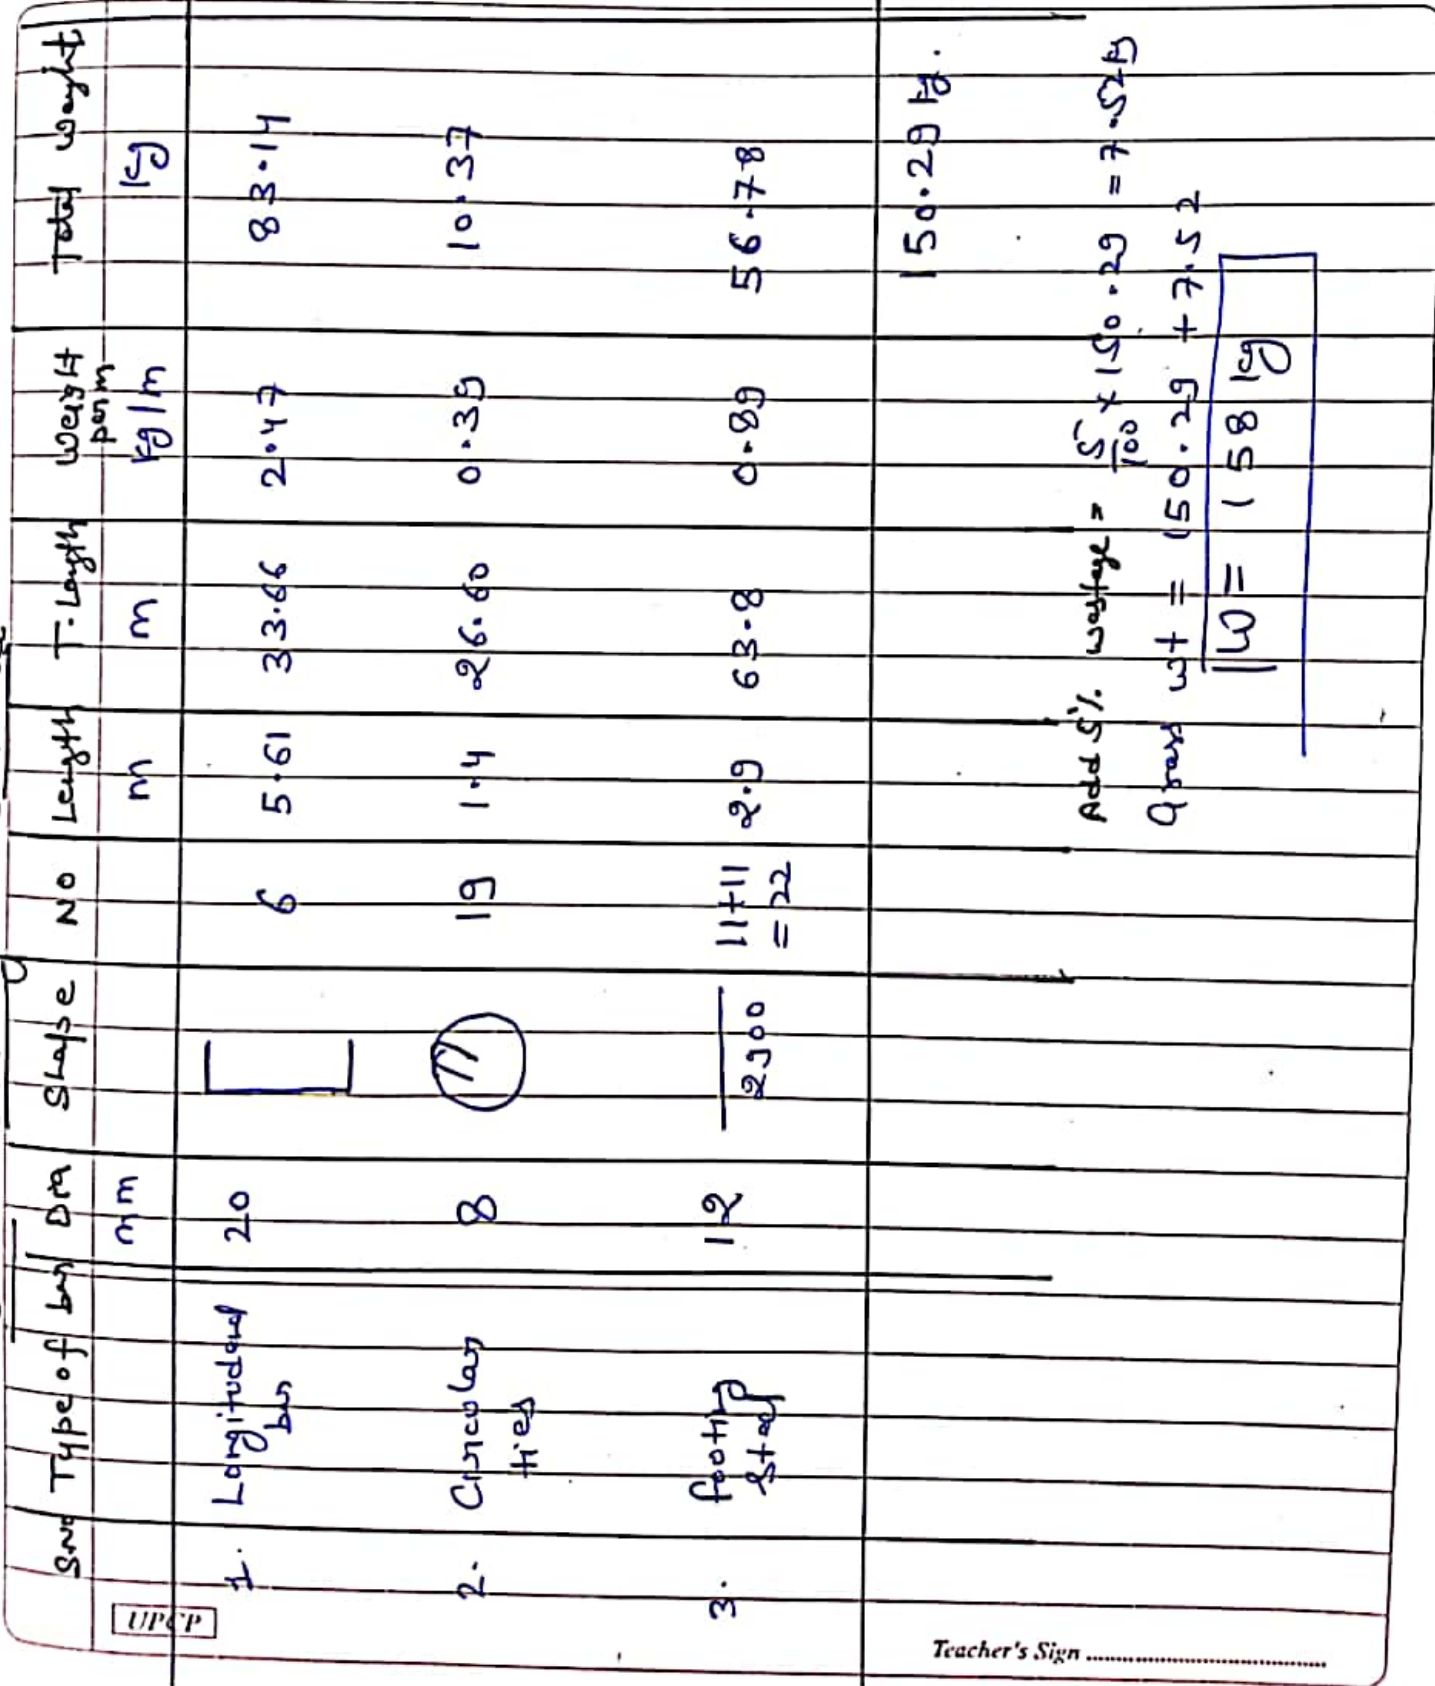 S.No Type of bar Dia Shape No Length T. Length Weight per m Total weight
mm m m kg/m kg
1. Longitudinal bar 20 6 5.61 33.66 2.47 83.14
2. Circular ties 8 19 1.4 26.60 0.39 10.37
3. footing steel 12 2900 11+11 = 22 2.9 63.8 0.89 56.78
150.29 kg.
Add 5% wastage = 5/100 × 150.29 = 7.52 kg
Gross wt = 150.29 + 7.52
W = 158 kg
UPCP
Teacher's Sign ........................................